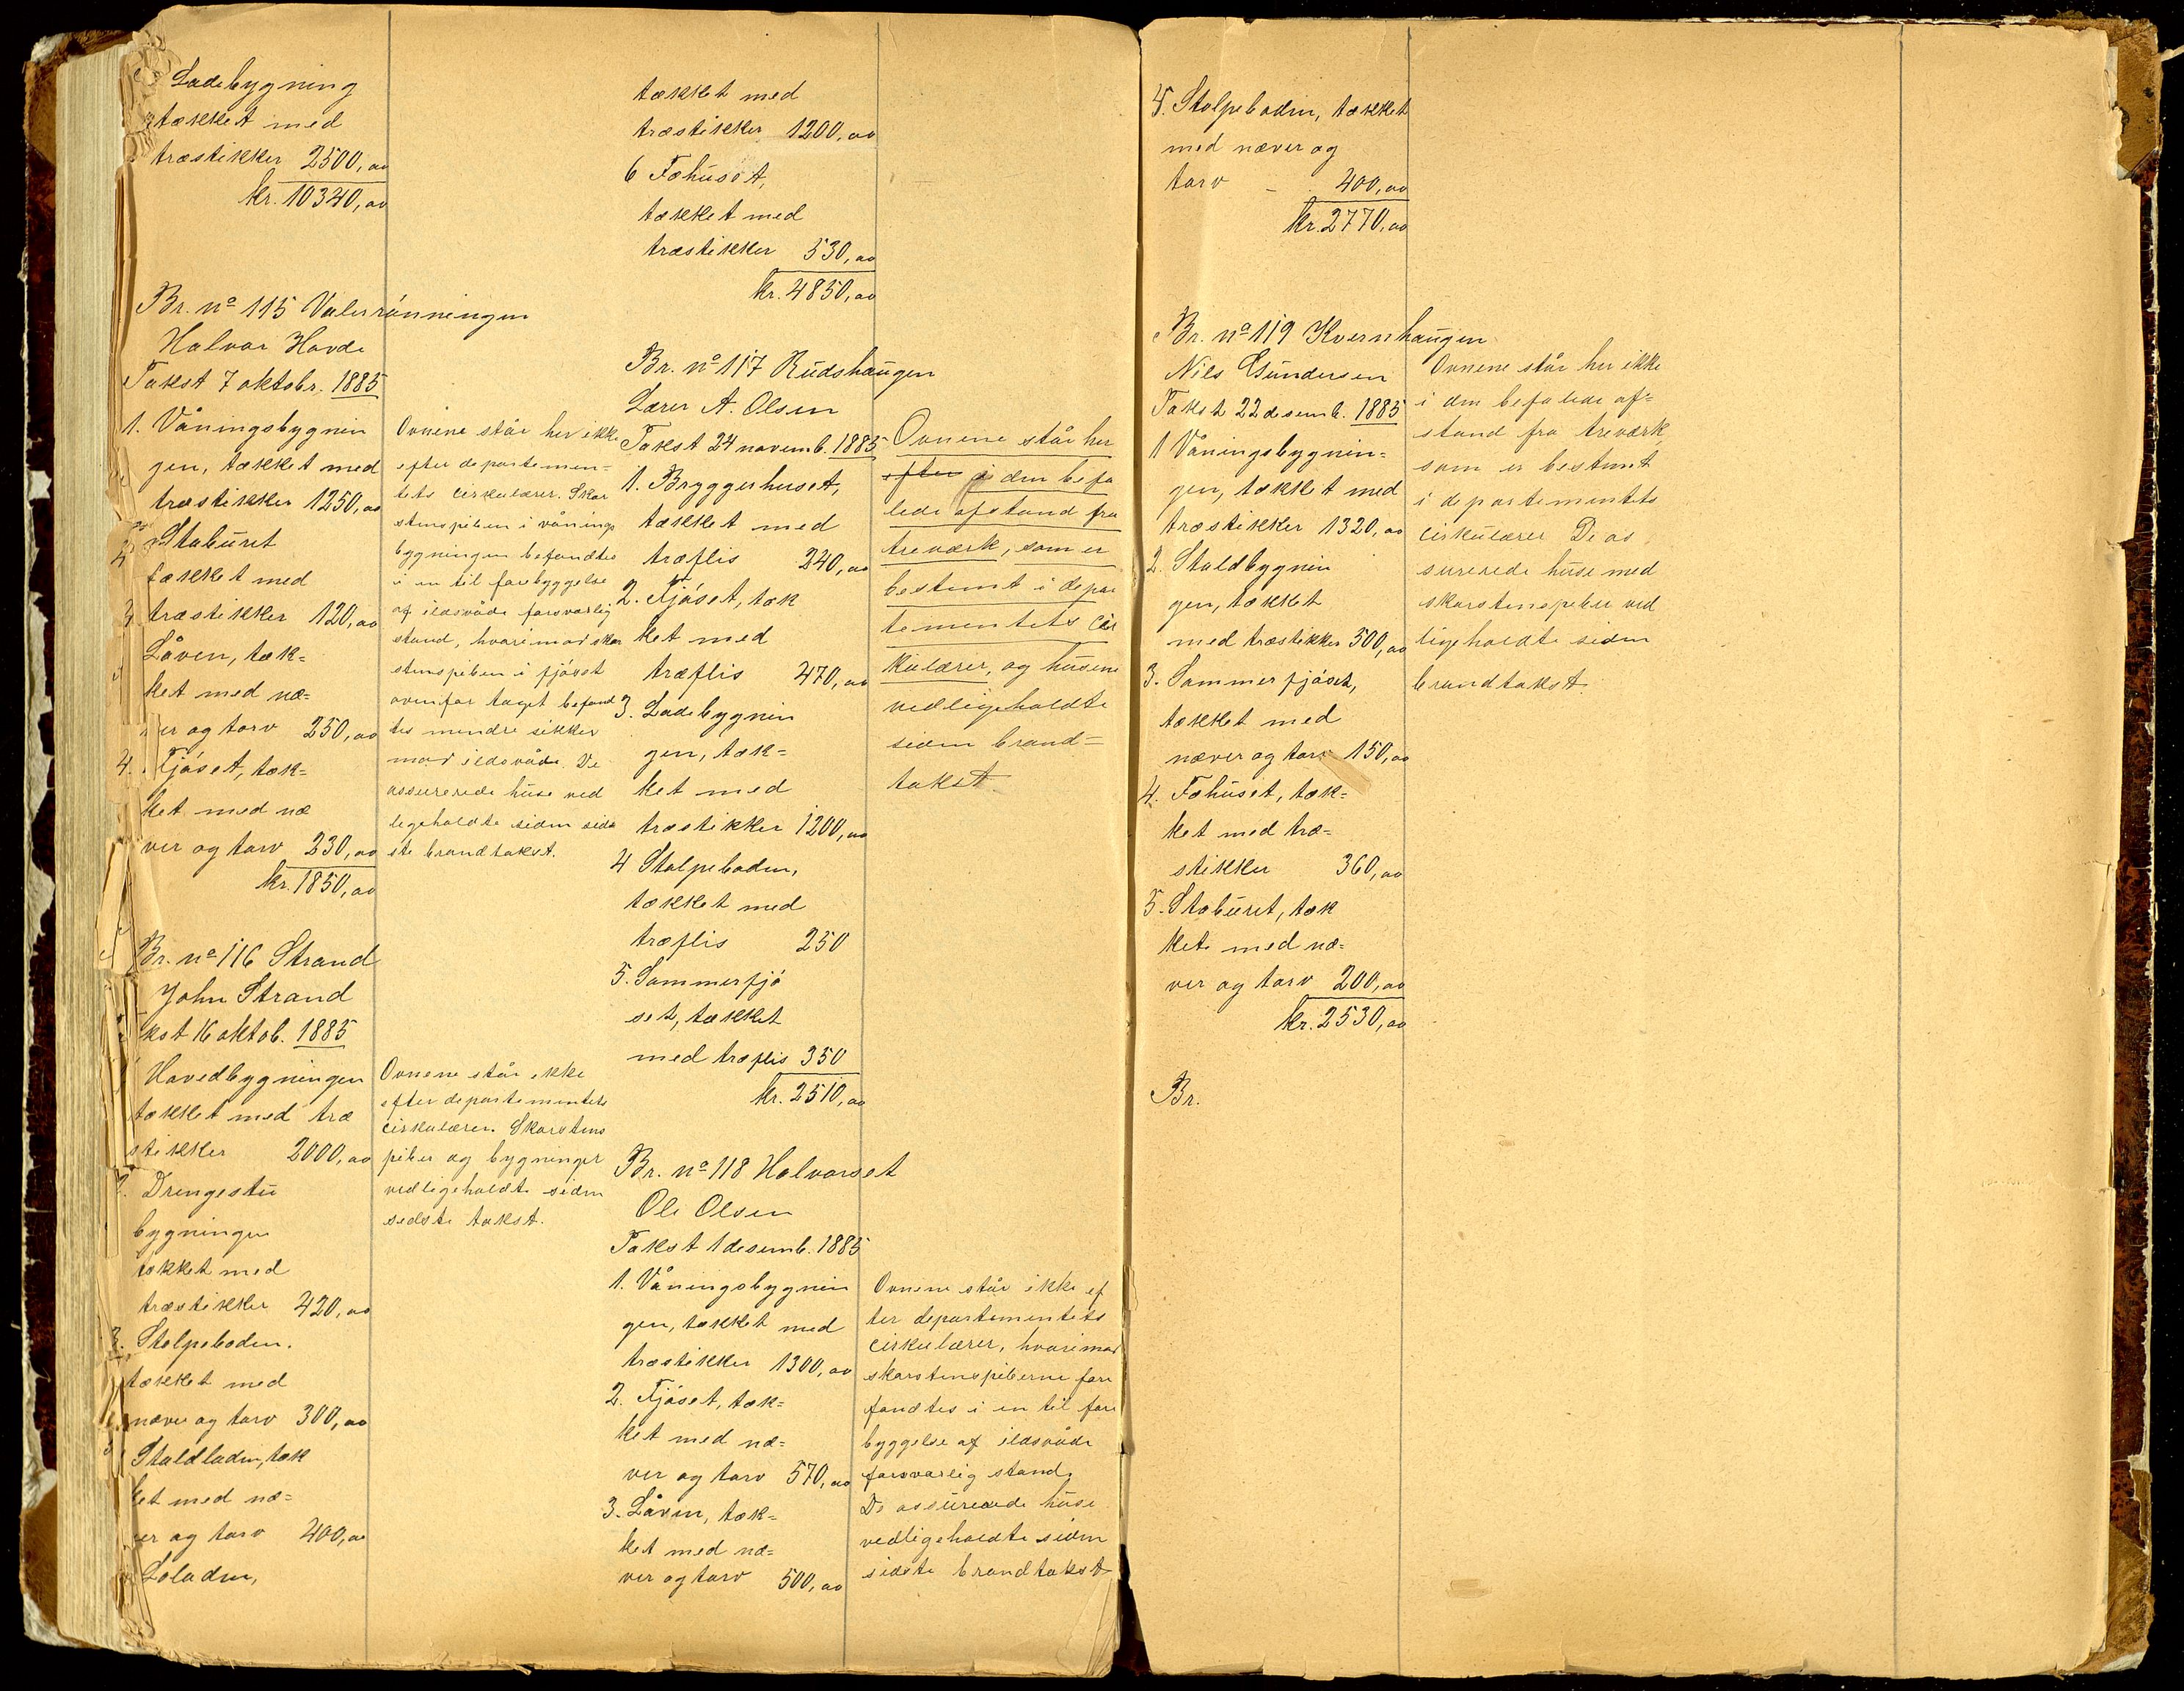 Ladebygning
tækket med
træstikker 2500,oo
kr. 10340,oo
Br. nº 115 Valerrönningen
Halvor Hovde
Takst 7 oktobr. 1885
1. Våningsbygnin
gen, tækket med
træstikker 1250,oo
2 Staburet
tækket med
træstikker 120,oo
3 Låven, tæk=
ket med næ=
er og torv 250,oo
4. Fjöset, tæk=
ket med næ
ver og torv 230,oo
kr. 1850,oo
Ovnene står her ikke
efter departemen=
tets cirkulærer. Skor
stenspiben i vånings
bygningen befandtes
i en til forebyggelse
af ildsvåde forsvarlig
stand, hvorimod skor
stenspiben i fjöset
ovenfor taget befand
tes mindre sikker
mod ildsvåde. De
assurerede huse ved
ligeholdte siden sid
ste brandtakst.
Br. nº 116 Strand
John Strand
kst 16 oktob. 1885
Hovedbygningen
tækket med træ
stikker 2000,oo
2. Drengestu
bygningen
tækket med
træstikker 420,oo
3. Stolpeboden.
tækket med
næver og torv 300,oo
Staldladen, tæk
ket med næ=
er og torv 400,oo
Loladen,
Ovnene står ikke
efter departementets
cirkulærer. Skorstens
piber og bygninger
vedligeholdte siden
sedste takst.
tækket med
træstikker 1200,oo
6 Fæhuset,
tækket med
træstikker 530,oo
kr. 4850,oo
Br. nº 117 Rudshaugen
Lærer A. Olsen
Takst 24 novemb. 1885
1. Bryggerhuset,
tækket med
træflis 240,oo
2. Fjöset, tæk
ket med
træflis 470,oo
3. Ladebygnin
gen, tæk=
ket med
træstikker 1200,oo
4 Stolpeboden,
tækket med
træflis 250
5. Sommerfjö
set, tækket
med træflis 350
kr. 2510,oo
Ovnene står her
efter i den befa
lede afstand fra
treværk, som er
bestemt i depar
tementets cir
kulærer, og husene
vedligeholdte
siden brand=
takst.
Br. nº 118 Halvorset
Ole Olsen
Takst 1 desemb. 1885
1. Våningsbygnin
gen, tækket med
træstikker 1300,oo
2. Fjöset, tæk=
ket med næ=
ver og torv 570,oo
3. Låven, tæk=
ket med næ=
ver og torv 500,oo
Ovnene står ikke ef
ter departementets
cirkulærer, hvorimod
skorstenspiberne fore
fandtes i en til fore
byggelse af ildsvåde
forsvarlig stand.
De assurerede huse
vedligeholdte siden
sidste brandtakst
4. Stolpeboden, tækket
med næver og
torv - 400,oo
kr. 2770,oo
Br. nº 119 Kvernhaugen
Nils Gundersen
Takst 22 desemb. 1885
1 Våningsbygnin=
gen, tækket med
træstikker 1320,oo
2. Staldbygnin
gen, tækket
med træstikker 500,oo
3. Sommerfjöset,
tækket med
næver og torv 150,oo
4. Fæhuset, tæk=
ket med træ=
stikker 360,oo
5. Staburet, tæk
ket med næ=
ver og torv 200,oo
kr. 2530,oo
Ovnene står her ikke
i den befalede af=
stand fra treværk,
som er bestemt
i departementets
cirkulærer De as
surerede huse med
skorstenspiber ved
ligeholdte siden
brandtakst.
Br.